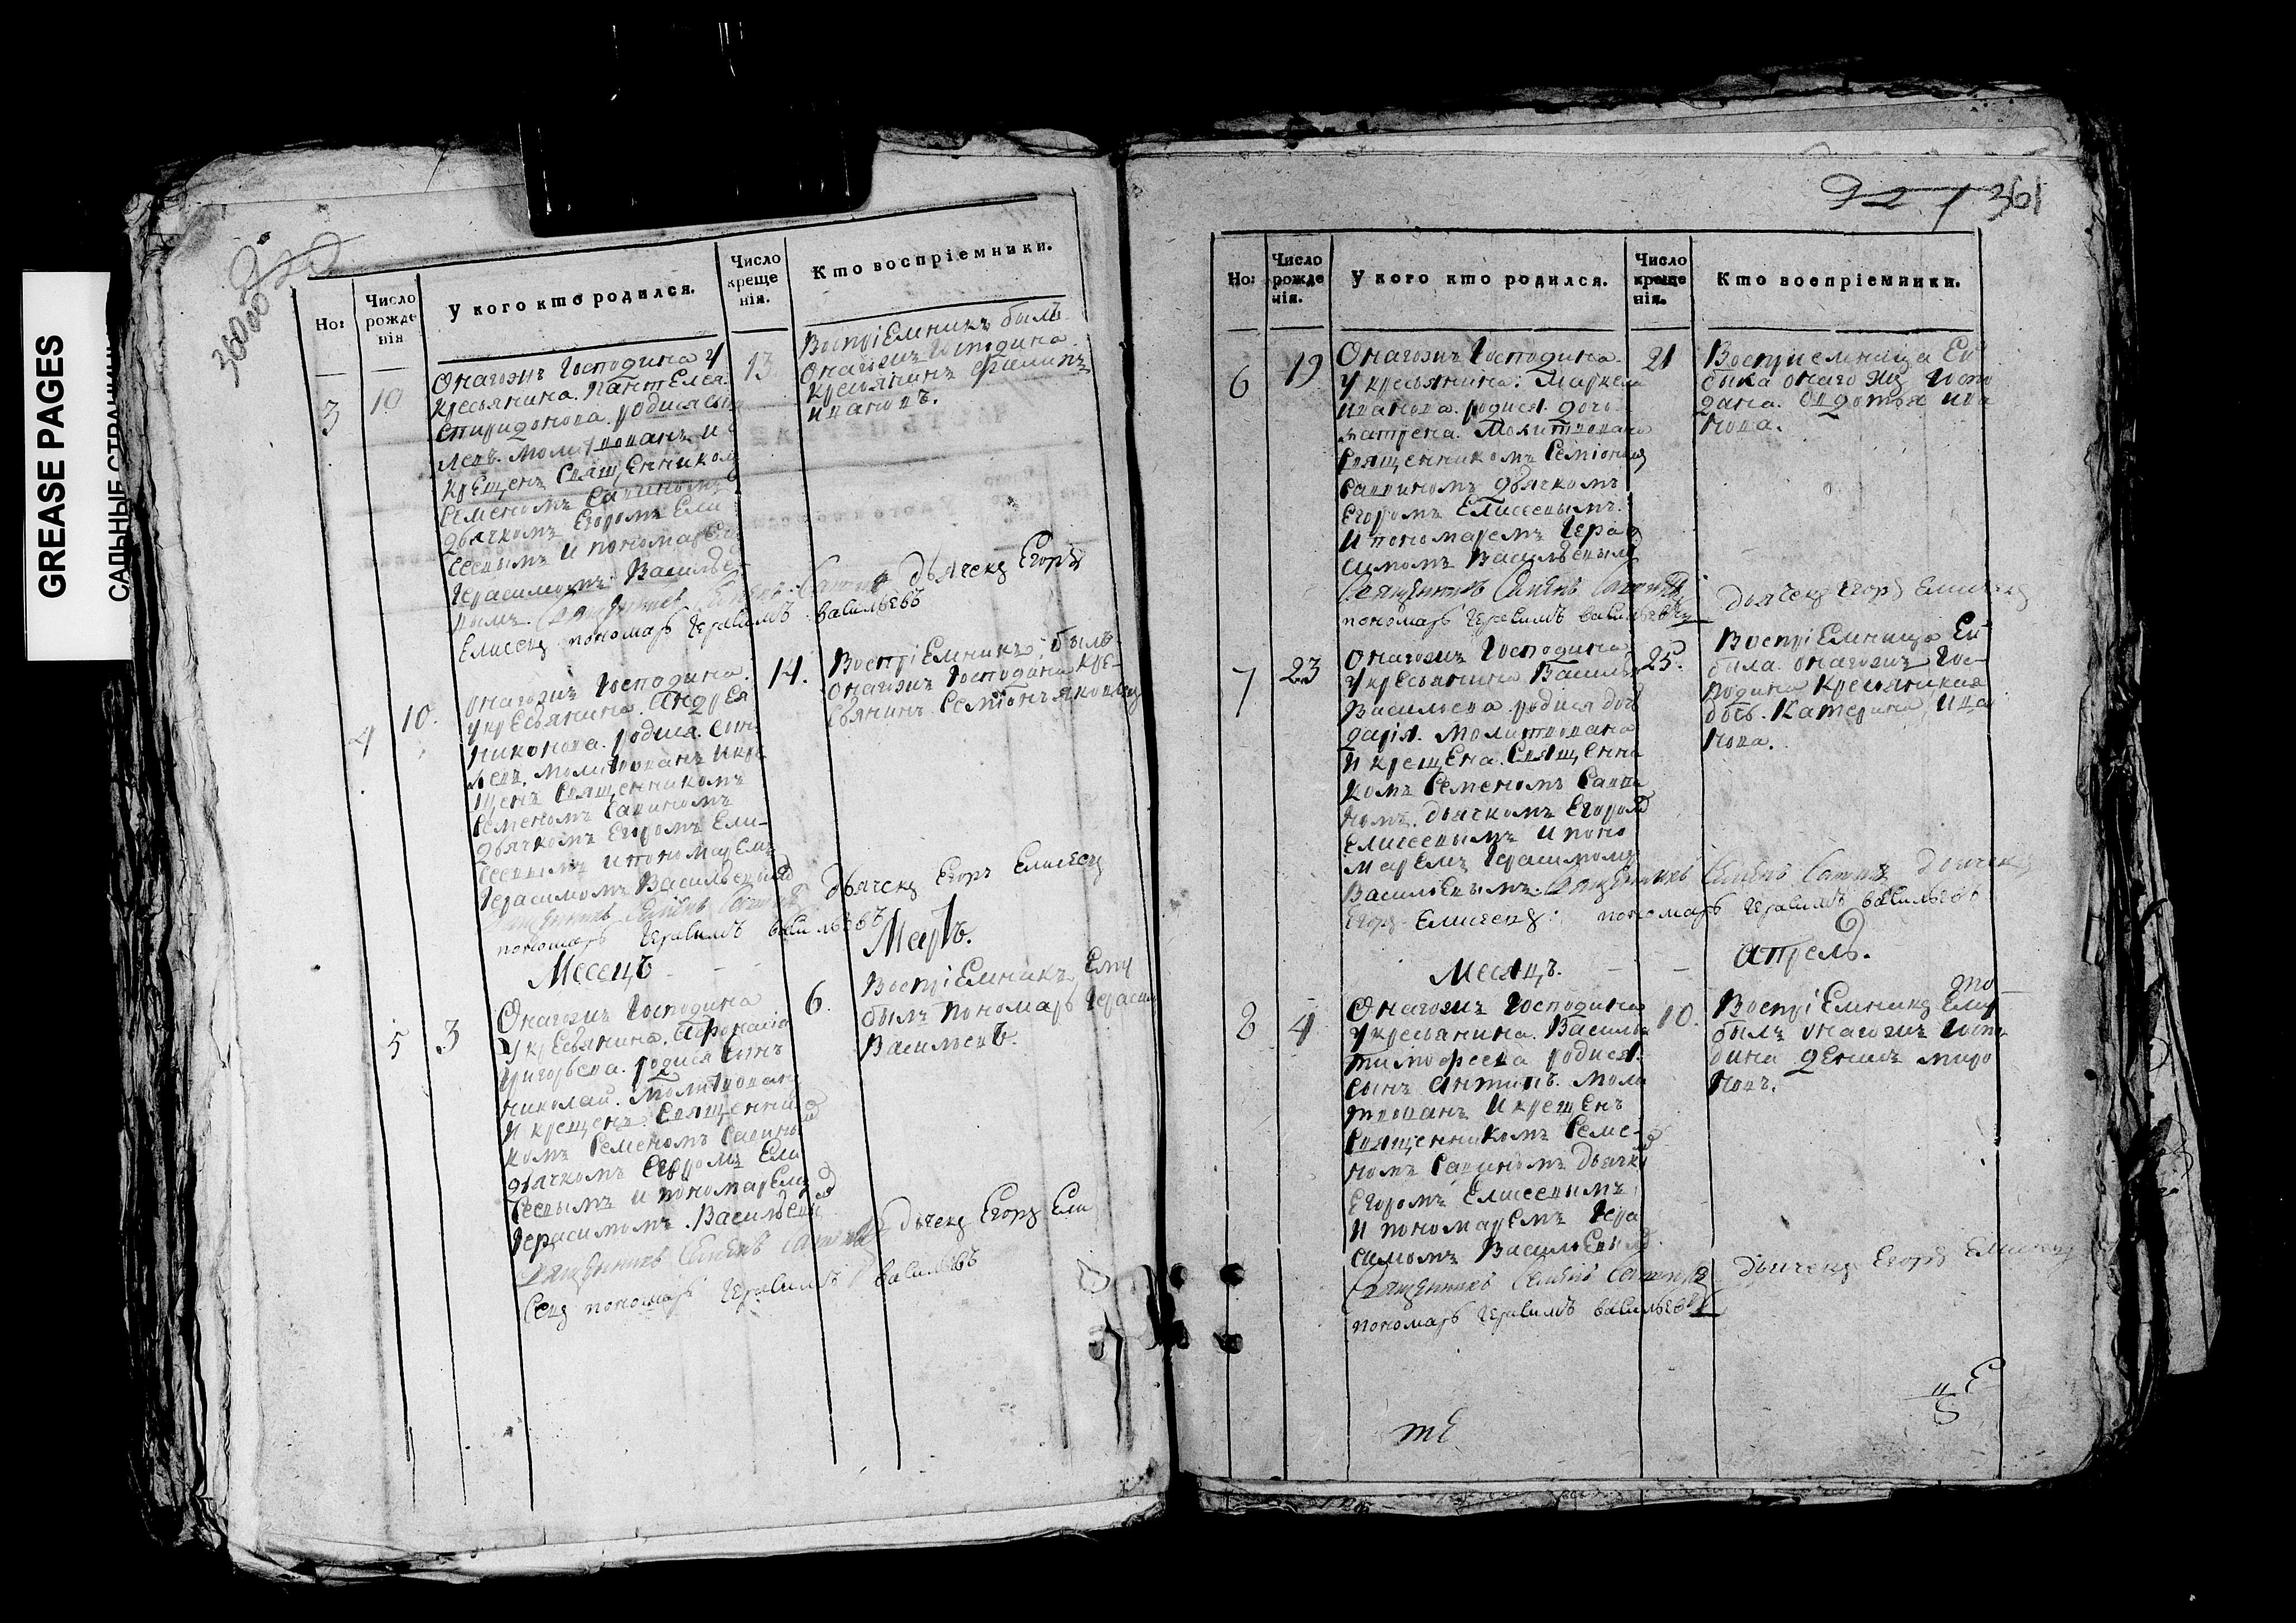 GREASE PAGES
САЛЬНЫЕ СТРАНИЦЫ
360 об
Но:
Число рожде нія
У кого кто родился.
Число креще нія.
Кто воспріемники.
3
10
Онагожъ Господина У
кресьянина. Пантелея.
Спиридонова. родися сынъ
левъ. молитвованъ и
крещенъ Священником
Семеномъ Савиномъ
дьячкомъ Егоромъ Ели
сеевымъ И пономарем
Герасимомъ Василье
вымъ. Священникъ Семенъ Савинъ дьячекъ Егоръ
Елисеевъ пономарь Герасимъ васильевъ
13
Воспріемникъ былъ
Онагожъ Господина
кресьянинъ Филипъ
Ивановъ.
4
10.
Онагожъ Господина.
У кресьянина. Андрея
Никонова. родися. сынъ
левъ. молитвованъ И кре
щенъ Священникомъ
Семеномъ Савиномъ
дьячкомъ Егоромъ Ели-
сеевымъ И пономаремъ
Герасимомъ Васильевымъ
Священникъ Семенъ Савинъ дьячекъ Егоръ Елисеевъ
пономарь Герасимъ васильевъ
14.
Воспріемникъ былъ
Онагожъ Господина кре-
сьянинъ Семіонъ Яковлевъ
Месецъ
Мартъ.
5
3
Онагожъ Господина
У кресьянина. Афонасія
Григорьева. родися сынъ
Николай. Молитвованъ
И крещенъ. Священни
комъ Семеномъ Савиным
дьячкомъ Егоромъ Ели
сеевымъ И пономаремъ
Герасимомъ. Васильевым
Священникъ Семенъ Савинъ дьячекъ Егоръ Ели
сеевъ пономарь Герасимъ васильевъ
6.
Воспріемникъ Ему
былъ пономарь Герасим
Васильевъ.
921 361
Но:
Число рожде нія.
У кого кто родился.
Число креще нія.
Кто воспріемники.
6
19
Онагожъ Господина.
У кресьянина: Маркела
Иванова. родися. дочь
матрена. Молитвована
Священникомъ Семіоном
Савиномъ дьячкомъ
Егоромъ Елисеевымъ.
И пономаремъ Гера
симомъ Васильевым
Священникъ Семенъ Савинъ дьячекъ Егоръ Елисеевъ
пономарь Герасимъ васильевъ
21
Воспріемница Ей
была онаго жъ Госпо
дина. Авдотья Ива
нова.
7
23
Онагожъ Господина
У кресьянина Василья
Васильева родися дочь
дарія. Молитвована
И крещена. Священни
комъ Семеномъ Сави
номъ. дьячкомъ Егором
Елисеевымъ И поно
маремъ Герасимомъ
Васильевымъ. Священникъ Семенъ Савинъ дьячекъ
Егоръ Елисеевъ: пономарь Герасимъ васильевъ
25.
Воспріемница Ей
была. онагожъ Гос-
подина кресьянская
дочь. Катерина Ива
нова.
Месяцъ.
Апрель.
8
4
Онагожъ Господина
У кресьянина. Василья
Тимофеева родися.
сынъ Антипъ. Моли
твованъ И крещенъ
Священникомъ Семе-
номъ Савиномъ дьячком
Егоромъ Елисеевымъ
И пономаремъ Гера
симомъ Васильевым
Священникъ Семенъ Савинъ дьячекъ Егоръ Елисеевъ
пономарь Герасимъ васильевъ
10.
Воспріемникъ Ему
былъ онагожъ Госпо
дина Денисъ миро
новъ.
те